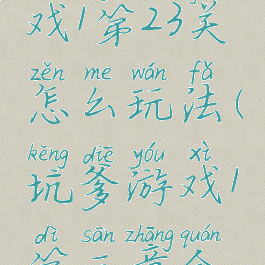 戏1第23关
zěn me wán fǎ
怎么玩法(
kēng diē yóu xì
坑爹游戏1
dì sān zhāng quán
第三章全